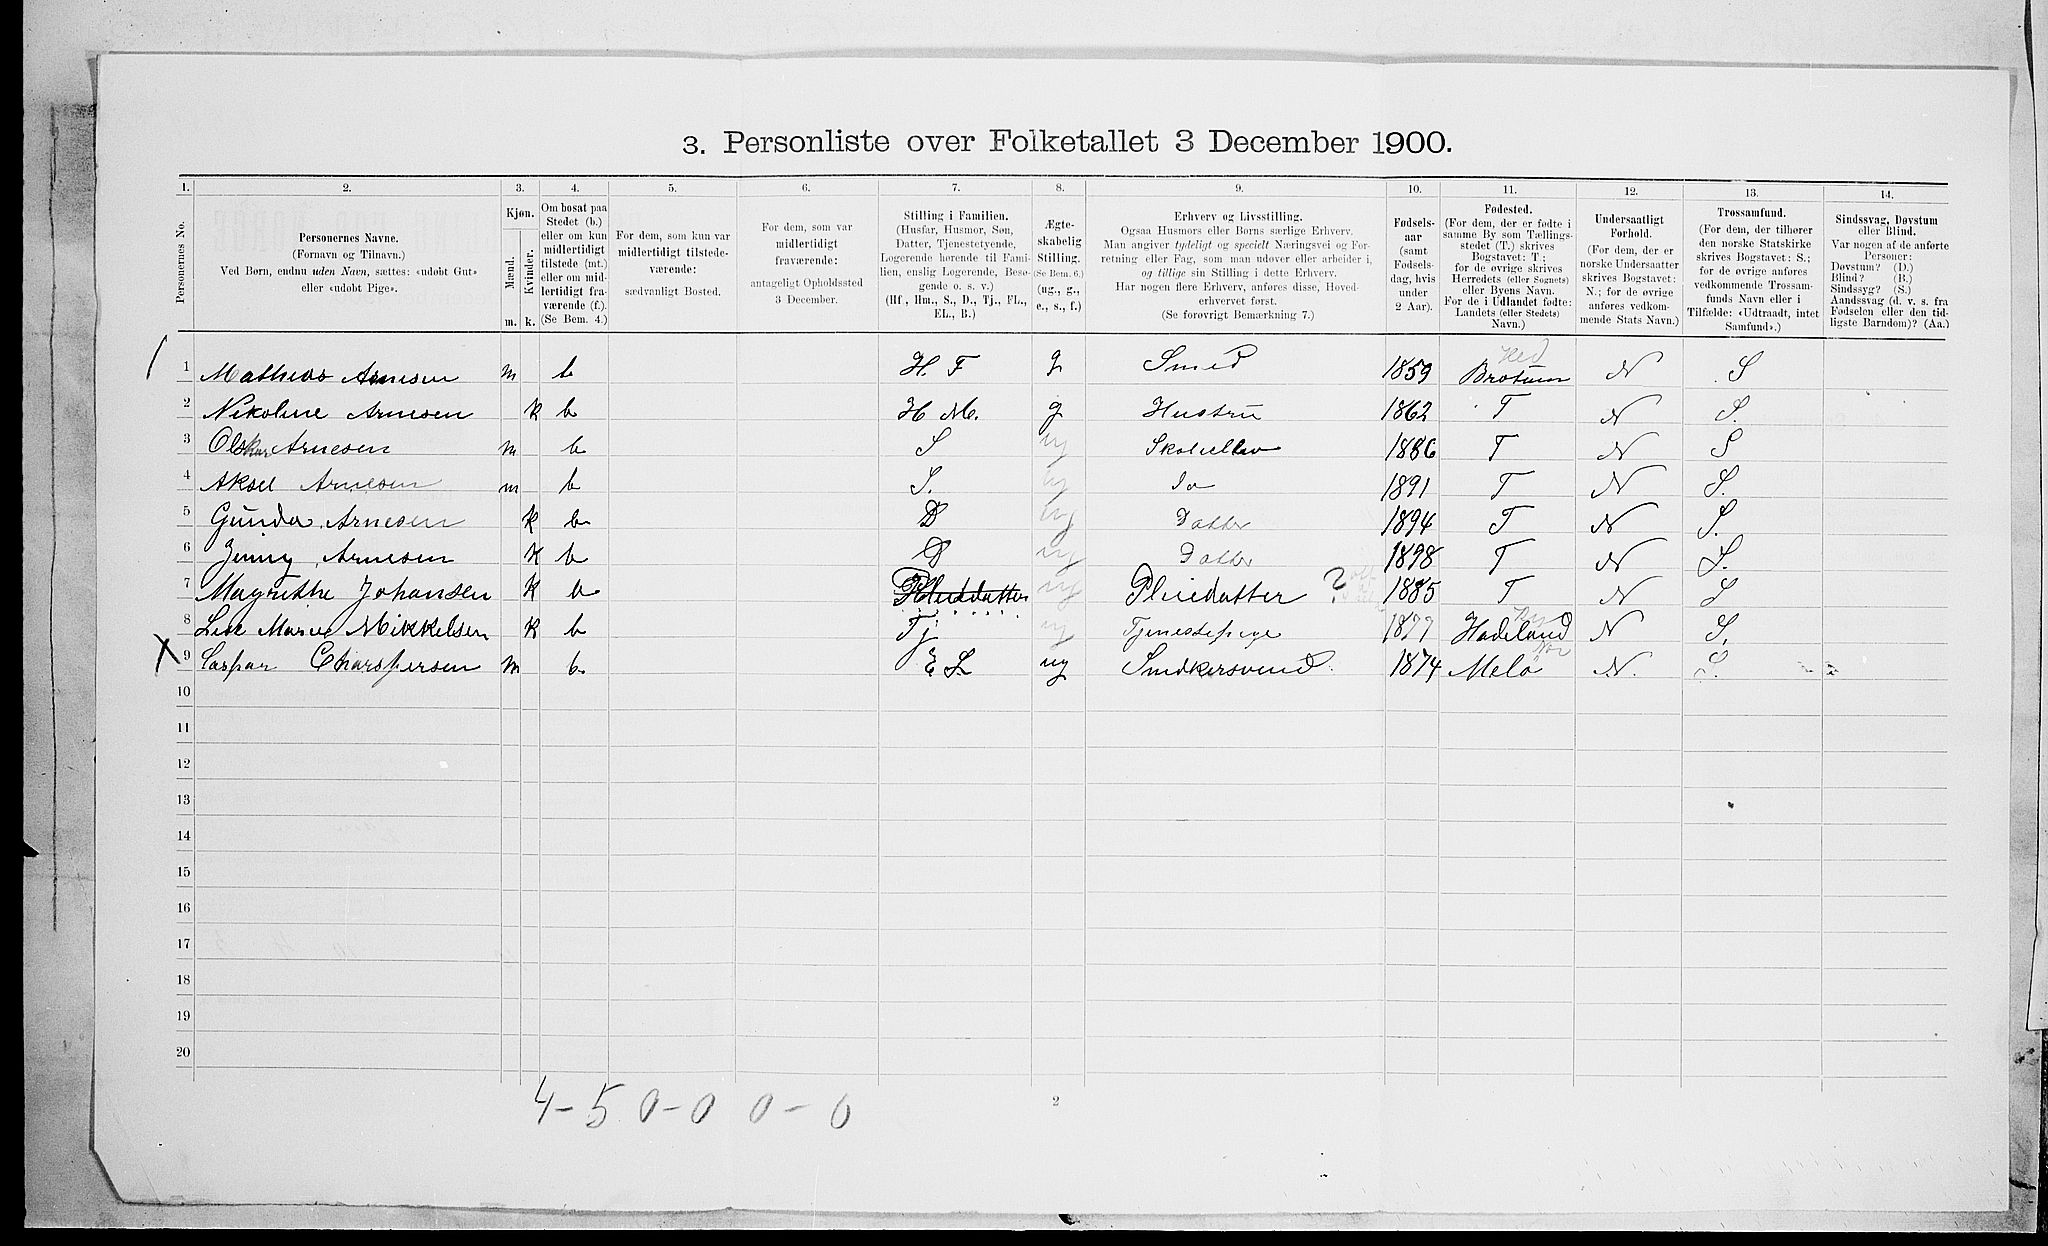 3. Personliste over Folketallet 3 December 1900.
1. 2. 3. 4. 5. 6. 7. 8. 9. 10. 11. 12. 13. 14.
Personernes No.
Personernes Navne.
(Fornavn og Tilnavn.)
Ved Børn, endnu uden Navn, sættes: «udøbt Gut»
eller «udøbt Pige».
Kjøn.
Mænd.
Kvinder.
m. k.
Om bosat paa
Stedet (b.)
eller om kun
midlertidigt
tilstede (mt.)
eller om mid-
lertidigt fra-
værende (f.).
(Se Bem. 4.)
For dem, som kun var
midlertidigt tilstede-
værende:
sædvanligt Bosted.
For dem, som var
midlertidigt
fraværende:
antageligt Opholdssted
3 December.
Stilling i Familien.
(Husfar, Husmor, Søn,
Datter, Tjenestetyende,
Logerende hørende til Fami-
lien, enslig Logerende, Besø-
gende o. s. v.)
(Hf., Hm., S., D., Tj., FL.,
EL., B.)
Ægte-
skabelig
Stilling.
(Se Bem. 6.)
(ug., g.,
e., s., f.)
Erhverv og Livsstilling.
Ogsaa Husmors eller Børns særlige Erhverv.
Man angiver tydeligt og specielt Næringsvei og For-
retning eller Fag, som man udøver eller arbeider i,
og tillige sin Stilling i dette Erhverv.
Har nogen flere Erhverv, anføres disse, Hoved-
erhvervet først.
(Se forøvrigt Bemærkning 7.)
Fødsels-
aar
(samt
Fødsels-
dag, hvis
under
2 Aar).
Fødested.
(For dem, der er fødte i
samme By som Tællings-
stedet (T.) skrives
Bogstavet: T.;
for de øvrige skrives
Herredets (eller Sognets)
eller Byens Navn.
For de i Udlandet fødte:
Landets (eller Stedets)
Navn.)
Undersaatligt
Forhold.
(For dem, der er
norske Undersaatter
skrives Bogstavet:
N.; for de øvrige
anføres vedkom-
mende Stats Navn.)
Trossamfund.
(For dem, der tilhører
den norske Statskirke
skrives Bogstavet: S.;
for de øvrige anføres
vedkommende Trossam-
funds Navn eller i
Tilfælde: «Udtraadt, intet
Samfund».)
Sindssvag, Døvstum
eller Blind.
Var nogen af de anførte
Personer:
Døvstum? (D.)
Blind? (B.)
Sindssyg? (S.)
Aandssvag (d. v. s. fra
Fødselen eller den tid-
ligste Barndom)? (Aa.)
1 Mathias Arnesen m b H. F g Smed 1859 Hed Brotum N S
2 Nikoline Arnesen k b H M. g Hustru 1862 T N S.
3 Arnesen m b S ug Skoleelev 1886 T N S
4 Aksel Arnesen m b S. ug do 1891 T N S.
5 Gunda Arnesen k b D ug Datter 1894 T N S.
6 Jenny Arnesen k b D ug Datter 1898 T N S.
7 Magrethe Johansen k b Pleiedatter ug Pleiedatter ? 1885 T N S
8 Marie Mikkelsen k b Tj ug Tjenestepige 1877 Hadeland N S.
9 Caspar m b. E L. ug 1874 Melö N. S.
10
11
12
13
14
15
16
17
18
19
20
4-5 0-0 0-0
2